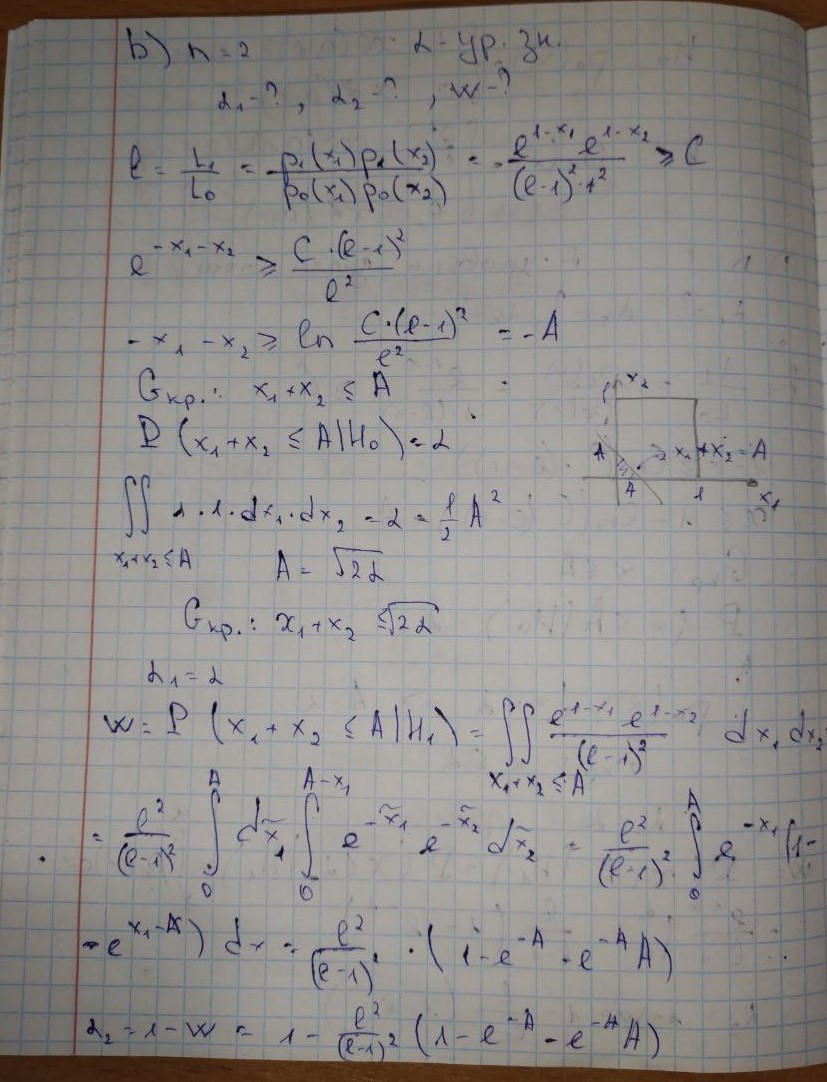 b) n = 2     α - ур. зн.
α₁ - ? , α₂ - ? , w - ?
l = L₁/L₀ = p₁(x₁) p₁(x₂) / p₀(x₁) p₀(x₂) = e^(1-x₁) e^(1-x₂) / (e-1)² · 1² ≥ C
e^(-x₁-x₂) ≥ C·(e-1)² / e²
-x₁ - x₂ ≥ ln C·(e-1)² / e² = -A
Gкр.: x₁ + x₂ ≤ A
P (x₁ + x₂ ≤ A | H₀) = α
1 x₂
A x₁ + x₂ = A
A 1 x₁
∬ 1 · 1 · dx₁ · dx₂ = α = 1/2 A²
x₁+x₂ ≤ A     A = √2α
Gкр.: x₁ + x₂ ≤ √2α
α₁ = α
w = P (x₁ + x₂ ≤ A | H₁) = ∬ e^(1-x₁) e^(1-x₂) / (e-1)² dx₁ dx₂
x₁+x₂ ≤ A
= e²/(e-1)² ∫₀^A dx̃₁ ∫₀^(A-x₁) e^(-x̃₁) e^(-x̃₂) dx̃₂ = e²/(e-1)² ∫₀^A e^(-x₁) (1-
- e^(x₁-A)) dx = e²/(e-1)² · (1 - e^(-A) - e^(-A) A)
α₂ = 1 - w = 1 - e²/(e-1)² (1 - e^(-A) - e^(-A) A)